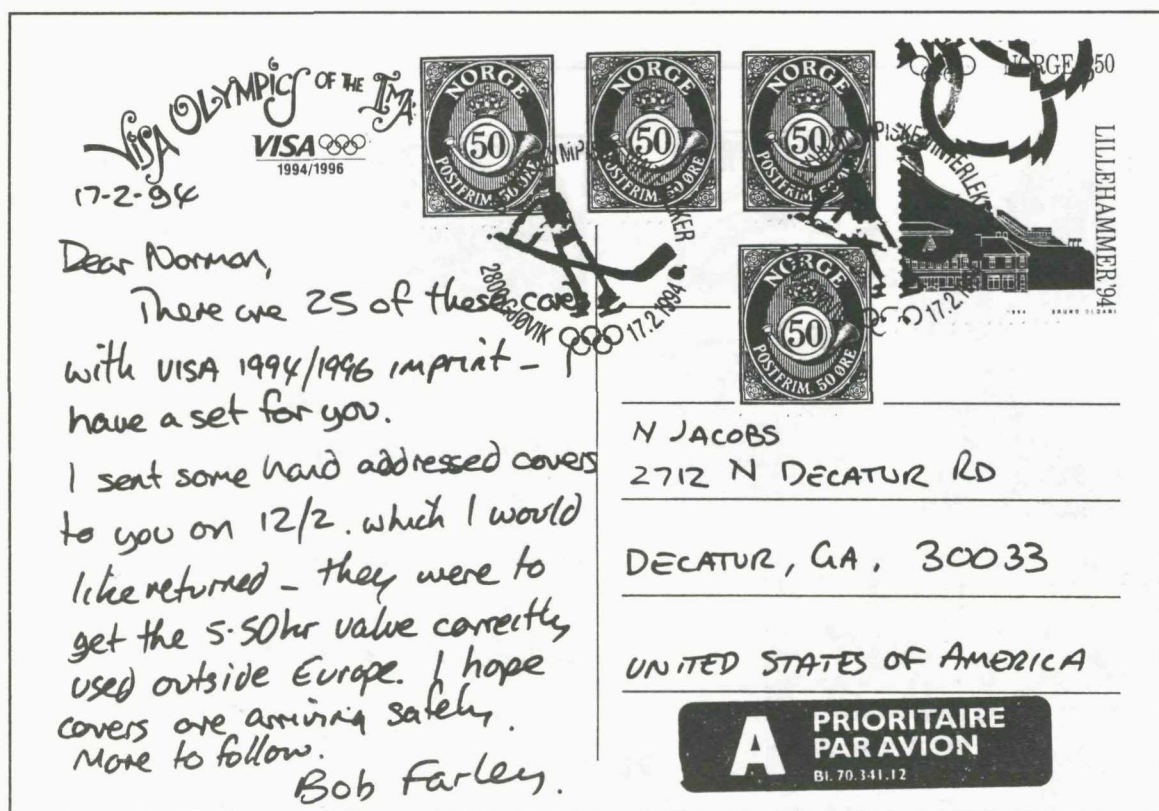 VISA OLYMPICS OF THE IMA
VISA
1994/1996
17-2-94
NORGE
50
POSTFRIM. 50 ØRE
NORGE
50
POSTFRIM. 50 ØRE
NORGE
50
POSTFRIM. 50 ØRE
NORGE 50
LILLEHAMMER'94
NORGE
50
POSTFRIM. 50 ØRE
GJØVIK
17.2.1994
Dear Norman,
There are 25 of these covers
with VISA 1994/1996 imprint - I
have a set for you.
I sent some hand addressed covers
to you on 12/2. which I would
like returned - they were to
get the 5.50kr value correctly
used outside Europe. I hope
covers are arriving safely.
More to follow.
Bob Farley.
N JACOBS
2712 N DECATUR RD
DECATUR, GA, 30033
UNITED STATES OF AMERICA
A PRIORITAIRE
PAR AVION
Bl. 70.341.12